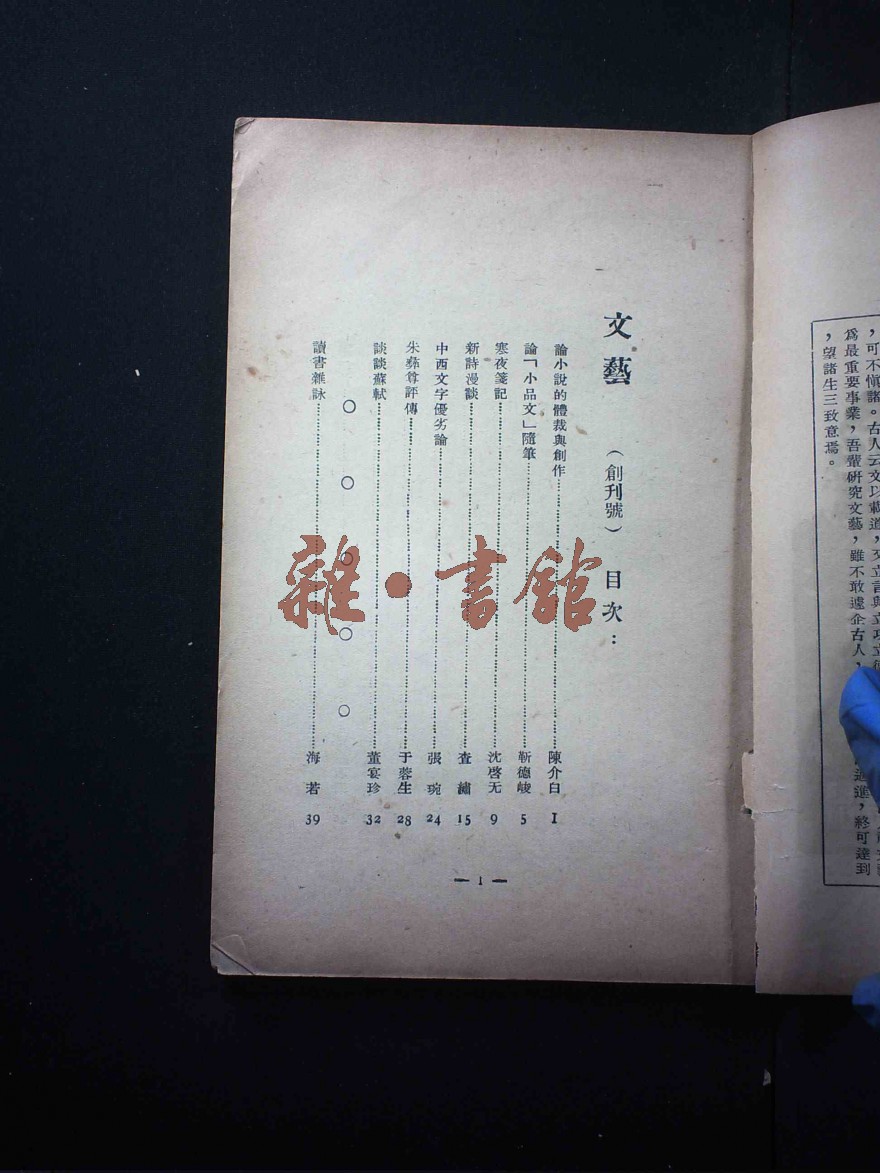 ，可不愼諸。古人云文以載道，
爲最重要事業，吾輩研究文藝，雖不敢遽企古人，
進，終可達到
，望諸生三致意焉。
文藝（創刊號）目次：
論小說的體裁與創作……陳介白 1
論「小品文」隨筆……靳德峻 5
寒夜箋記……沈啓无 9
新詩漫談……查繡 15
中西文字優劣論……張琬 24
朱彝尊評傳……于蓉生 28
談談蘇軾……董宴珍 32
○ ○ ○ ○ ○
讀書雜詠……海若 39
— 1 —
雜·書館